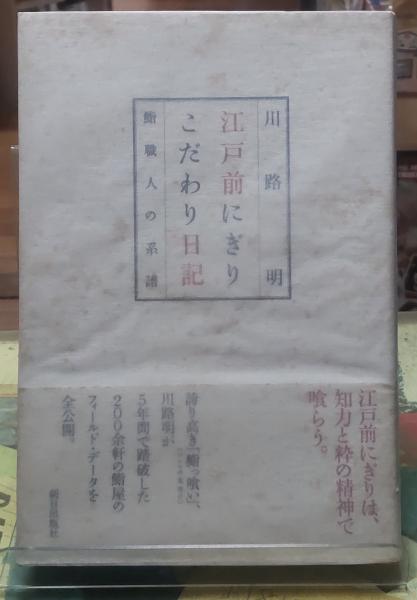 川路明
江戸前にぎり
こだわり日記
鮨職人の系譜
江戸前にぎりは、
知力と粋の精神で
喰らう。
誇り高き「鮨っ喰い」、
川路明が
5年間で踏破した
200余軒の鮨屋の
フィールド・データを
全公開。
朝日出版社